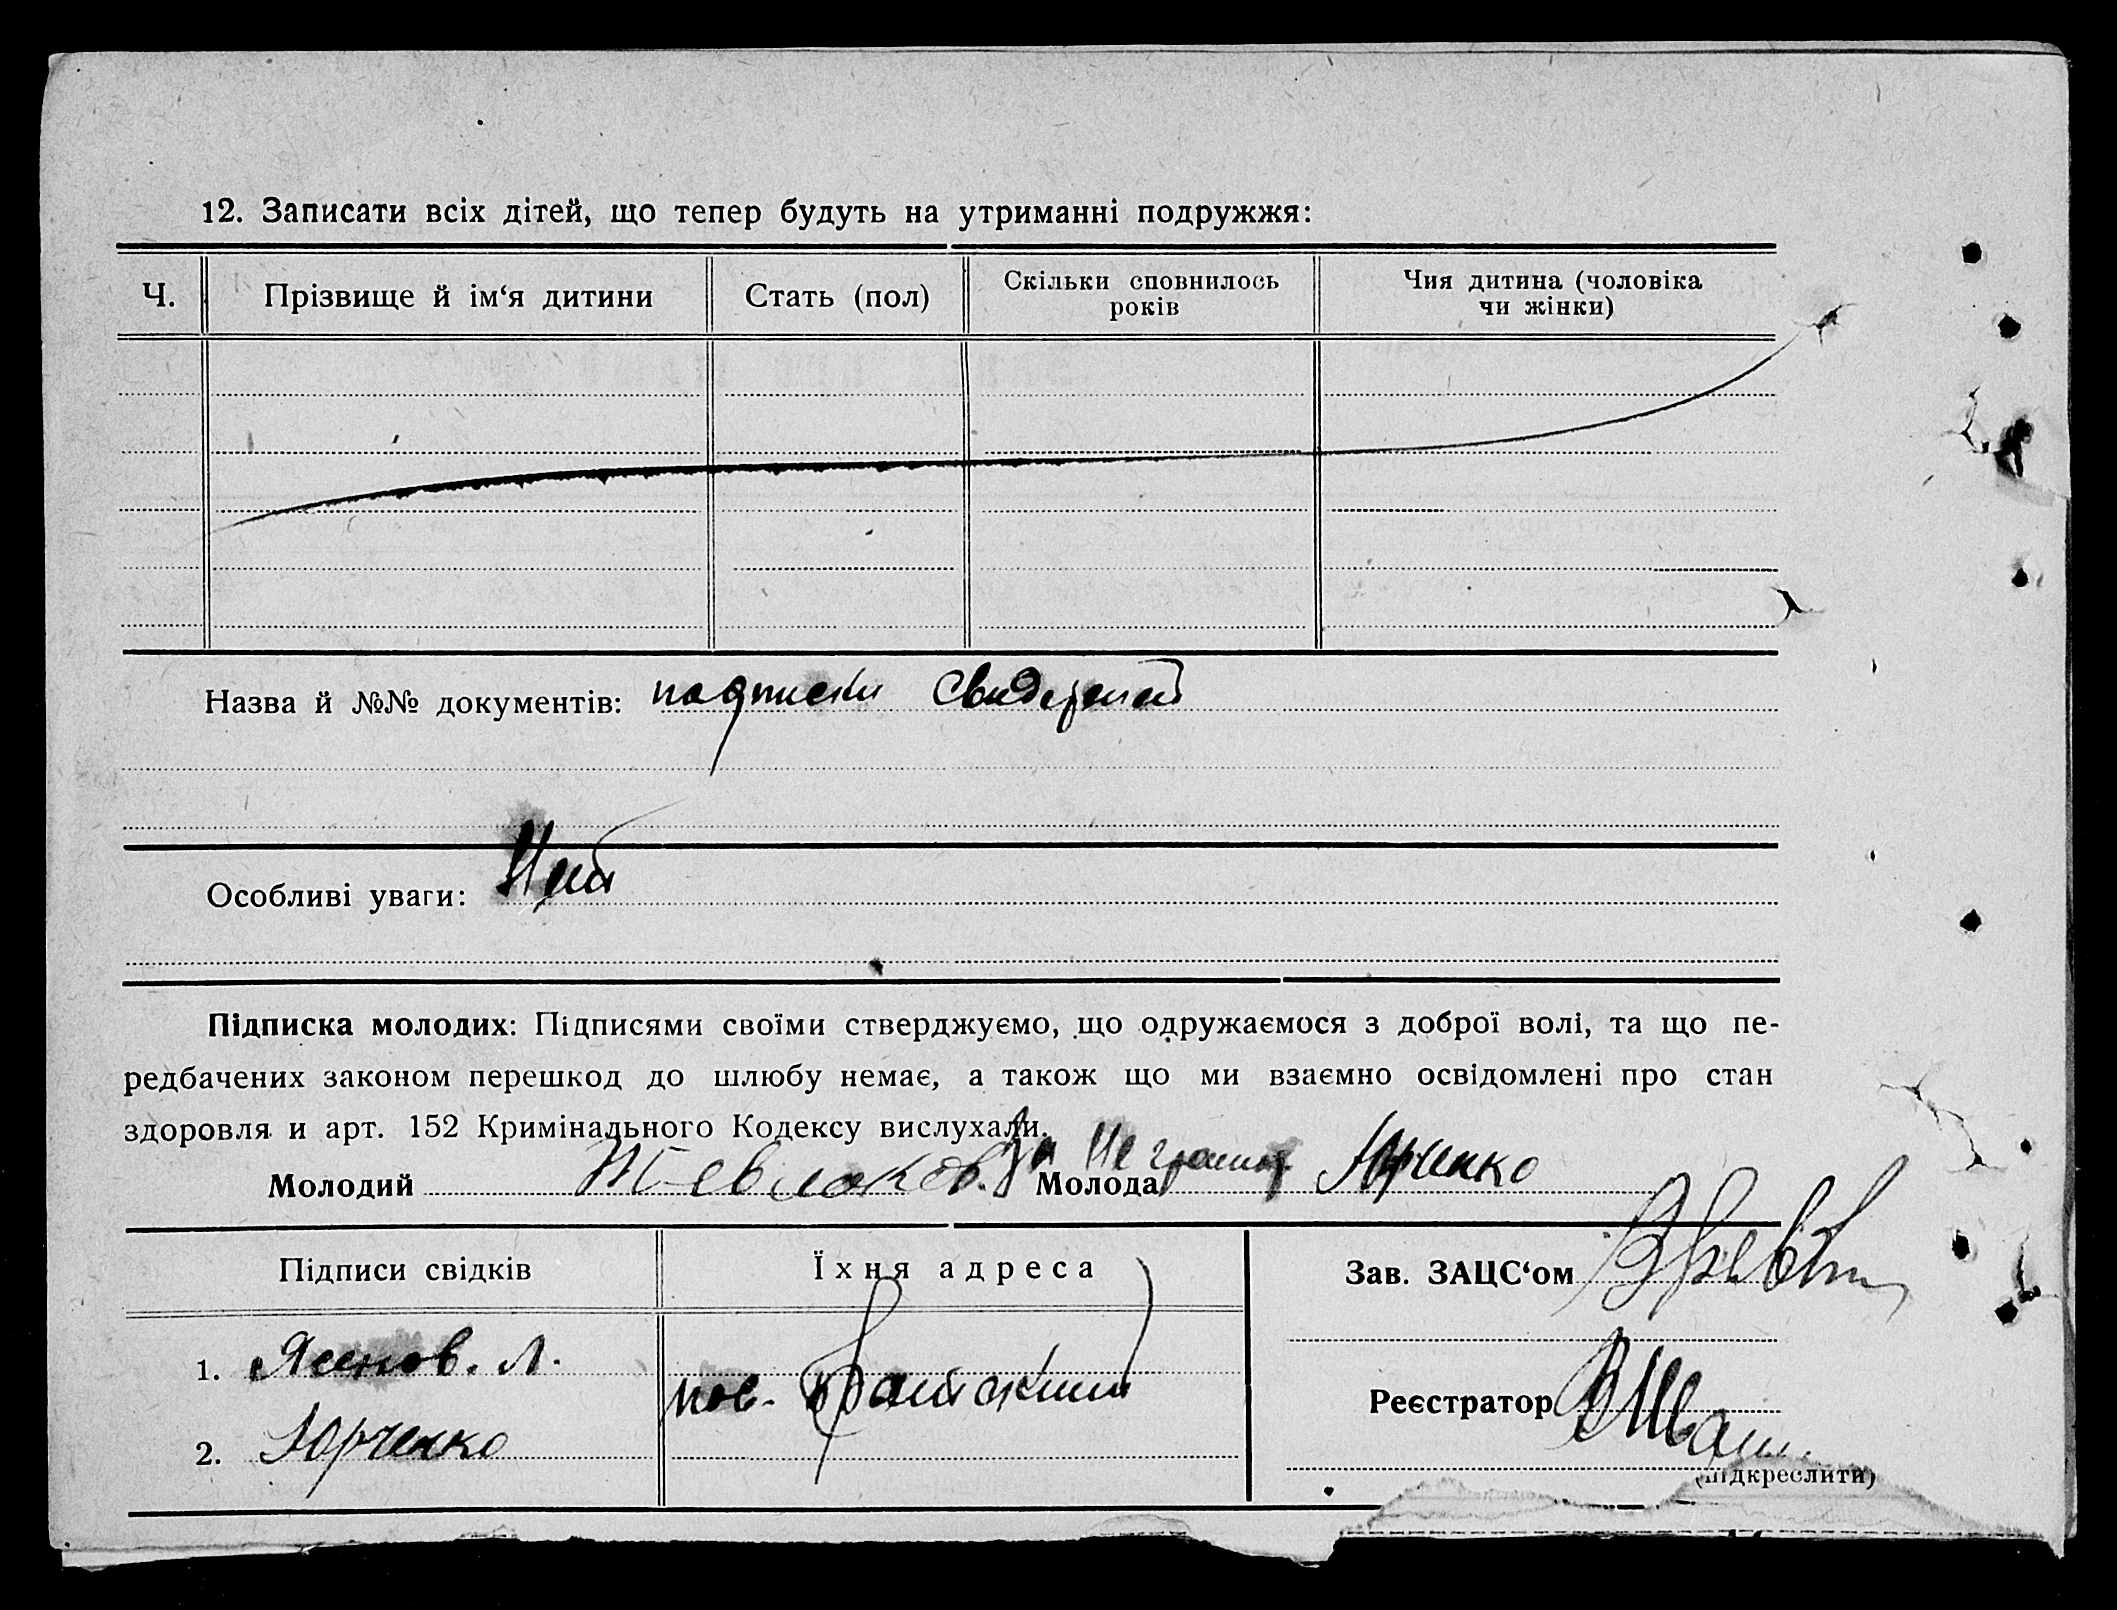 12. Записати всіх дітей, що тепер будуть на утриманні подружжя:
Ч. Прізвище й ім‘я дитини Стать (пол) Скільки сповнилось років Чия дитина (чоловіка чи жінки)
Назва й №№ документів: подписки свидетелей
Особливі уваги: Нет
Підписка молодих: Підписями своїми стверджуємо, що одружаємося з доброї волі, та що пе-
редбачених законом перешкод до шлюбу немає, а також що ми взаємно освідомлені про стан
здоровля и арт. 152 Кримінального Кодексу вислухали.
Молодий Жевлаков. Молода за Неграмот. Юрченко
Підписи свідків Їхня адреса Зав. ЗАЦС‘ом
1. Ясенов. Л.
пос.
Реєстратор
2. Юрченко
(підкреслити)